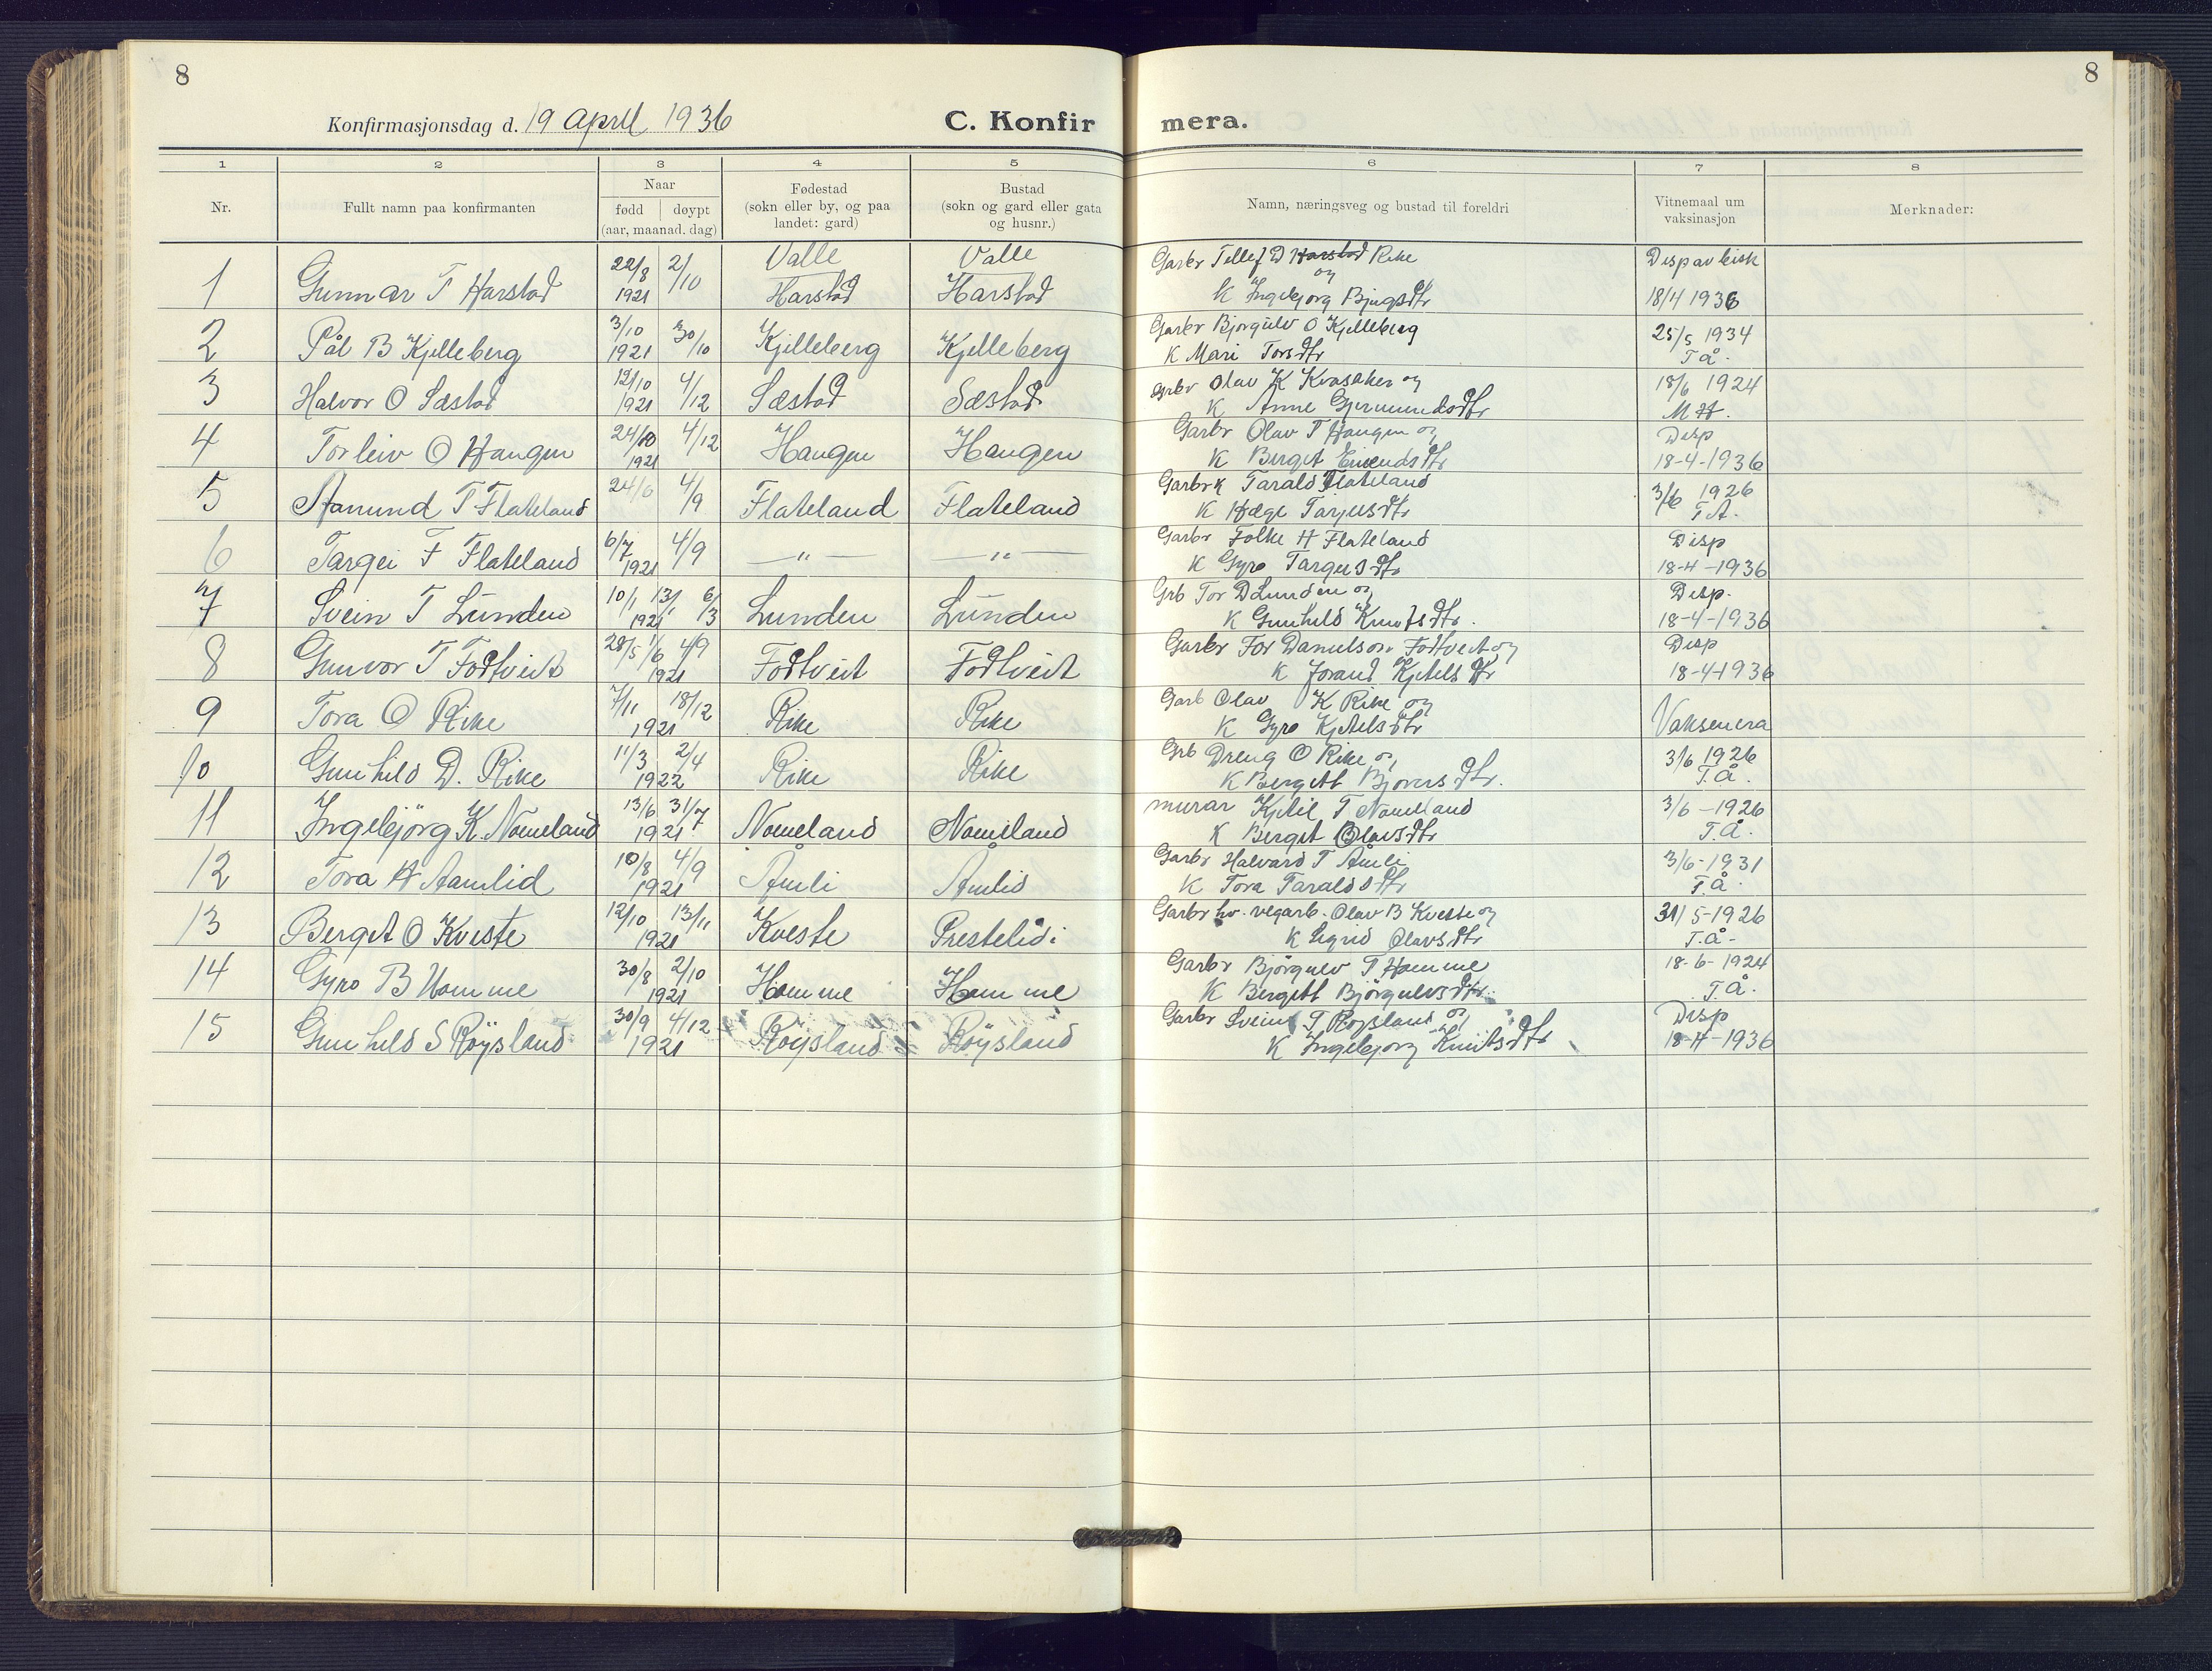 8
8
Konfirmasjonsdag d. 19 April 1936
C. Konfir mera.
1 2 3 4 5 6 7 8
Nr.
Fullt namn paa konfirmanten
Naar
fødd døypt
(aar, maanad. dag)
Fødestad
(sokn eller by, og paa
landet: gard)
Bustad
(sokn og gard eller gata
og husnr.)
Namn, næringsveg og bustad til foreldri
Vitnemaal um
vaksinasjon
Merknader:
1 Gunnar T Harstad 22/8 1921 2/10 Valle Harstad Valle Harstad Garbr Tellef D Harstad Rike og
K Ingebjorg Bjugsdtr Disp av bisk 18/4 1936
2 Pål B Kjelleberg 3/10 1921 30/10 Kjelleberg Kjelleberg Garbr Bjorgulv O Kjelleberg
K Mari Torsdtr 25/5 1934 T Å.
3 Halvor O Sæstad 1921 4/12 Sæstad Sæstad Grbr Olav K Kvasaker og
K Anne Gjermundsdtr 18/6 1924 M H.
4 Torleiv O Haugen 24/10 1921 4/12 Haugen Haugen Garbr Olav T Haugen og
K Berget Eivendsdtr Disp 18-4-1936
5 Aanund T Flateland 24/6 4/9 Flateland Flateland Garbrk Tarald Flateland
K Hæge Tarjeisdtr 3/6 1926 T.A.
6 Targei F Flateland 6/7 1921 4/9 — " — — " — Garbr Folke H Flateland
K Gyro Targeisdtr Disp 18-4-1936
7 Svein T Lunden 10/1 13/1 1921 6/3 Lunden Lunden Grb Tor D Lunden og
K Gunhild Knutsdtr. Disp. 18-4-1936
8 Gunvor T Fodtveit 28/5 1/6 1921 4/9 Fodtveit Fodtveit Garbr Tor Danielson Fodtveit og
K Jorand Kjetelsdtr Disp 18-4-1936
9 Tora O Rike 7/11 1921 18/12 Rike Rike Garb Olav K Rike og
K Gyro Kjetelsdtr Vaksenera
10 Gunhild D. Rike 11/3 1922 2/4 Rike Rike Grb Dreng O Rike og
K Bergitt Bjorersdtr. 3/6 1926 T.Å.
11 Ingebjörg K. Nomeland 13/6 1921 31/7 Nomeland Nomeland murar Kjetil T Nomeland
K Berget Olavsdtr 3/6-1926 T.Å.
12 Tora H Aamlid 10/8 1921 4/9 Åmli Åmlid Garbr Halvard T Åmli
K Tora Taraldsdtr 3/6-1931 T.Å.
13 Berget O Kveste 12/10 1921 13/11 Kveste Prestelidi Garbr hv. vegarb. Olav B Kveste og
K Sigrid Olavsdtr 31/5-1926 T.Å.
14 Gyro B Homme 30/8 1921 2/10 Homme Homme Garbr Bjørgulv T Homme
K Bergitt Bjørgulvsdtr. 18-6-1924 T.Å.
15 Gunhild S Röysland 30/9 1921 4/12 Röysland Röysland Garbr Svein T Røysland og
K Ingebjorg Knutsdtr Disp 18-4-1936